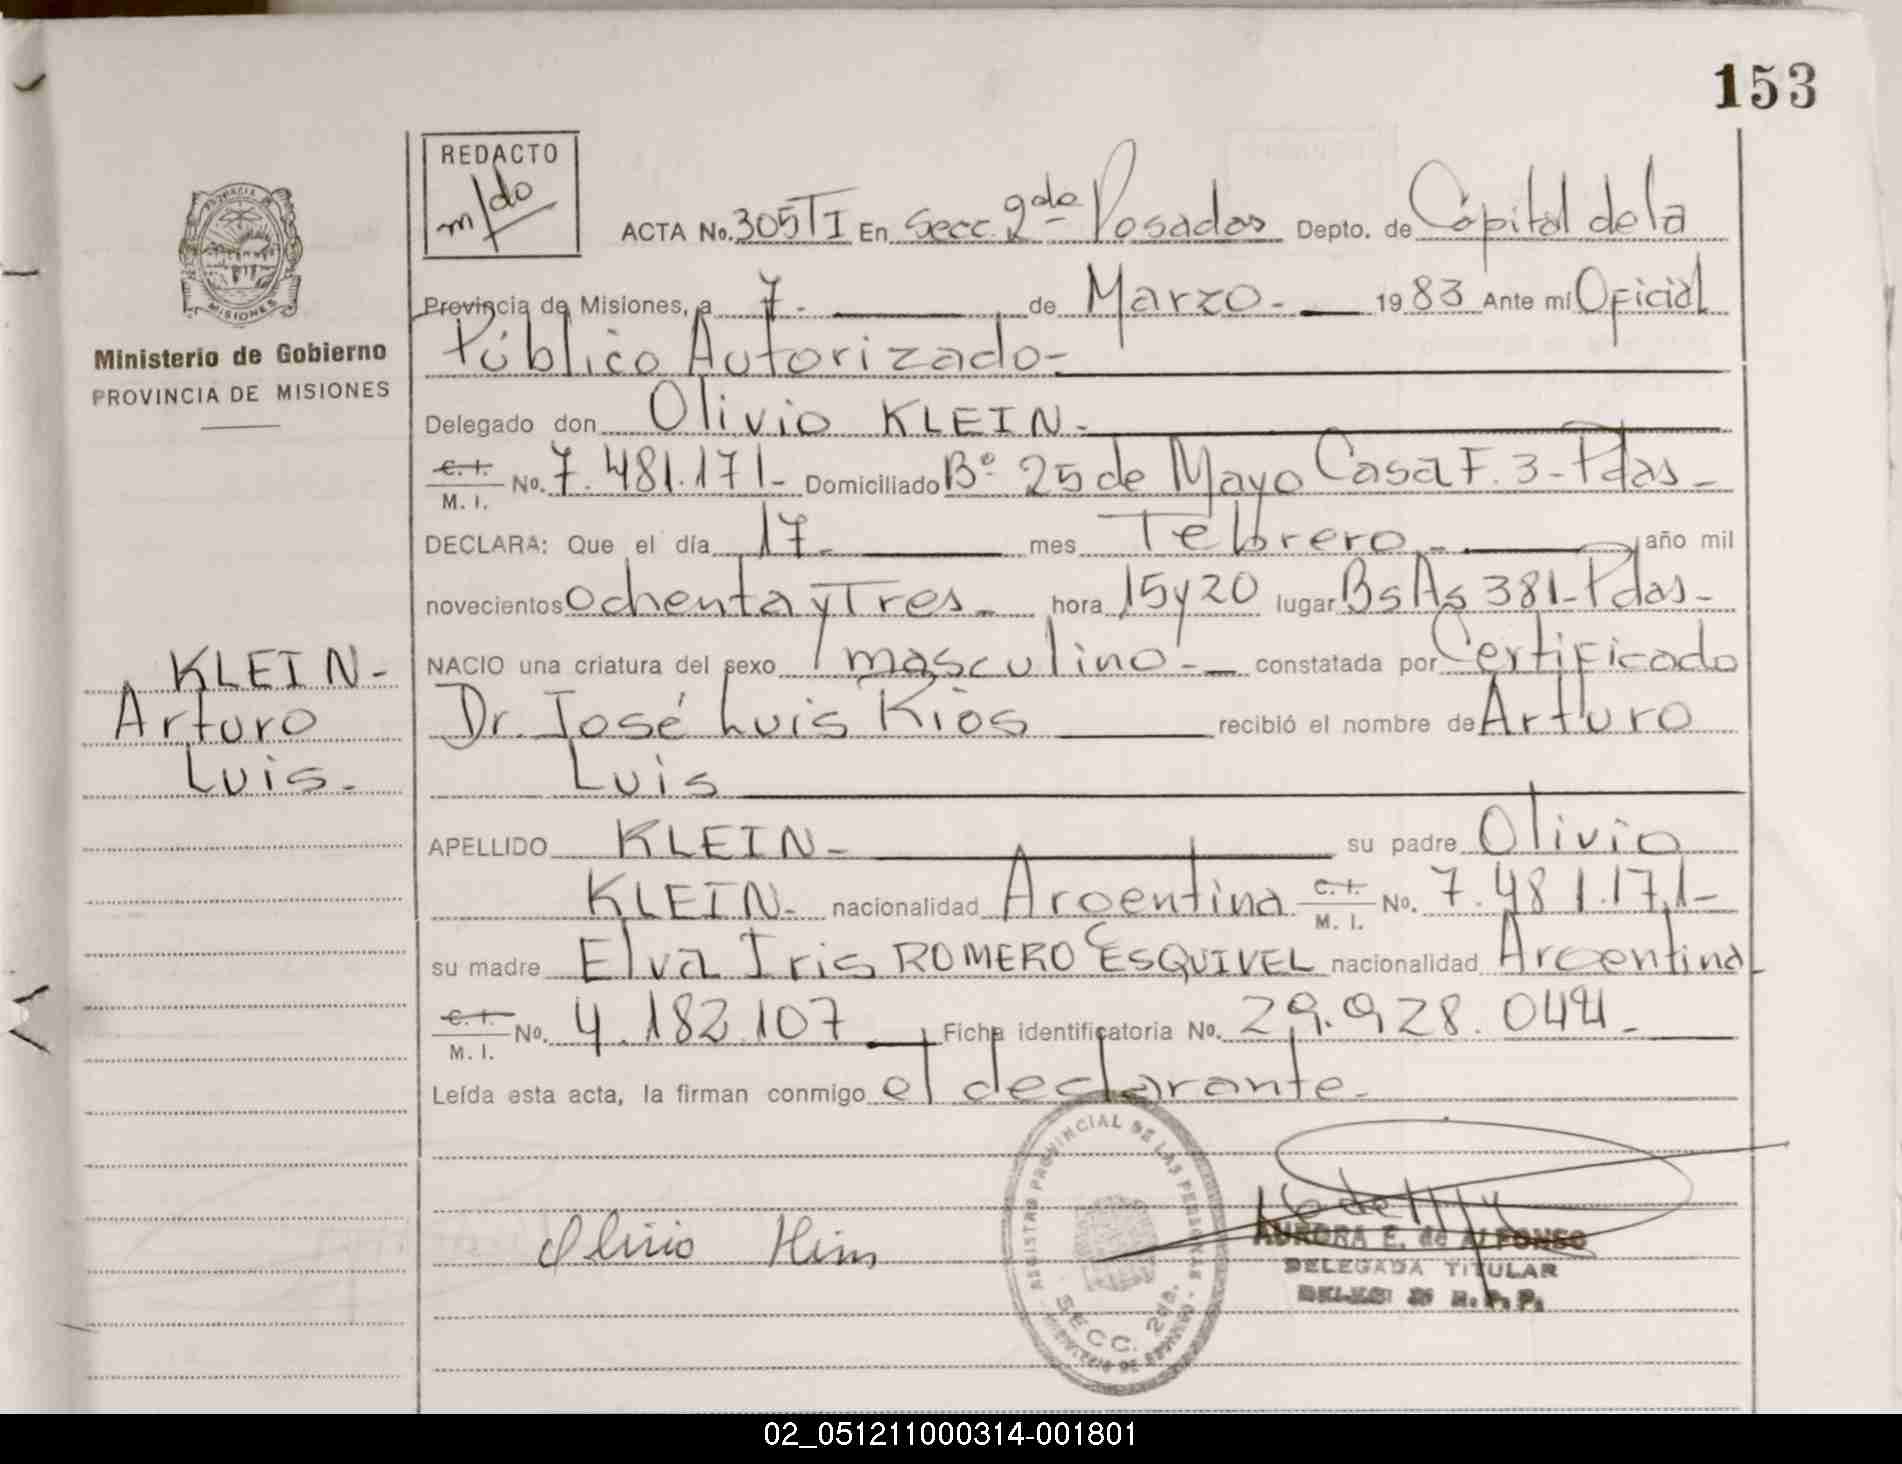 153
REDACTO
m/do
ACTA No. 305 T I En Secc. 2da Posadas Depto. de Capital de la
Provincia de Misiones, a 7. de Marzo - 1983 Ante mi Oficial
Ministerio de Gobierno
PROVINCIA DE MISIONES
Público Autorizado -
Delegado don Olivio KLEIN -
C. I. M. I. No. 7.481.171 - Domiciliado Bº 25 de Mayo Casa F. 3 - Pdas -
DECLARA: Que el día 17 - mes Febrero - año mil
novecientos ochenta y Tres - hora 15 y 20 lugar Bs As 381 - Pdas -
KLEIN -
Arturo
Luis -
NACIO una criatura del sexo masculino - constatada por Certificado
Dr. José Luis Rios recibió el nombre de Arturo
Luis
APELLIDO KLEIN - su padre Olivio
KLEIN - nacionalidad Argentina C. I. M. I. No. 7.481.171 -
su madre Elva Iris ROMERO ESQUIVEL nacionalidad Argentina
C. I. M. I. No. 4.182.107 Ficha identificatoria No. 29.928.044 -
Leída esta acta, la firman conmigo el declarante -
REGISTRO PROVINCIAL DE LAS PERSONAS
SECC. 2da.
Olivio
AURORA E. de ALFONSO
DELEGADA TITULAR
02_051211000314-001801